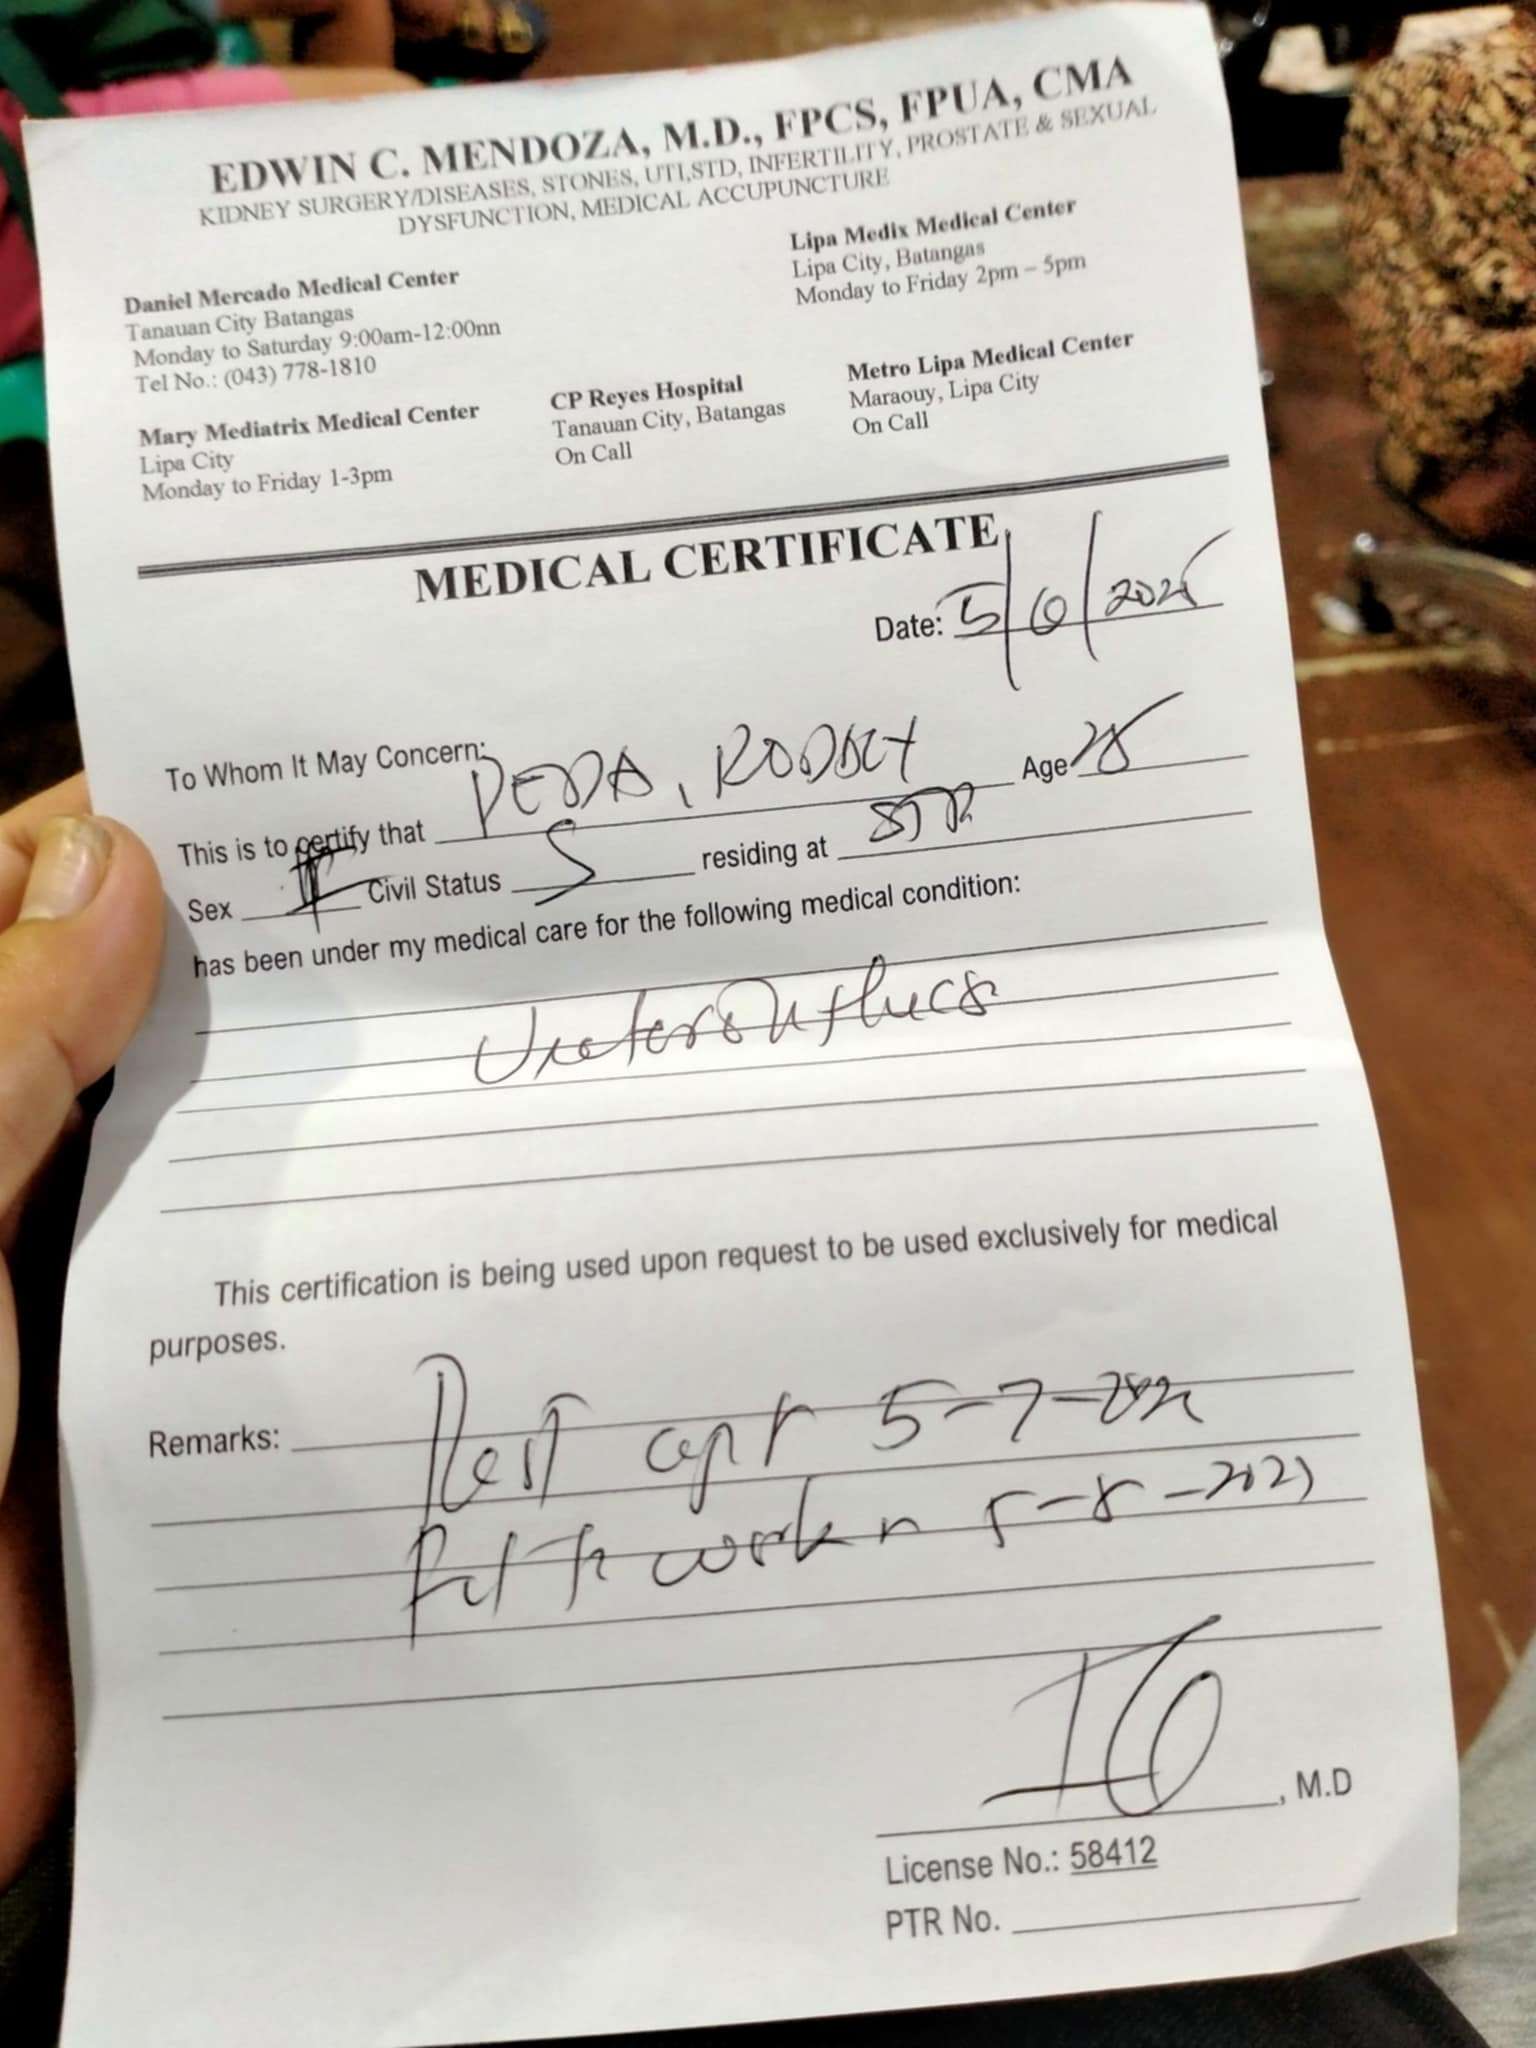 EDWIN C. MENDOZA, M.D., FPCS, FPUA, CMA
KIDNEY SURGERY/DISEASES, STONES, UTI,STD, INFERTILITY, PROSTATE & SEXUAL
DYSFUNCTION, MEDICAL ACCUPUNCTURE
Daniel Mercado Medical Center
Tanauan City Batangas
Monday to Saturday 9:00am-12:00nn
Tel No.: (043) 778-1810
Lipa Medix Medical Center
Lipa City, Batangas
Monday to Friday 2pm – 5pm
Mary Mediatrix Medical Center
Lipa City
Monday to Friday 1-3pm
CP Reyes Hospital
Tanauan City, Batangas
On Call
Metro Lipa Medical Center
Maraouy, Lipa City
On Call
MEDICAL CERTIFICATE
Date: 5/6/2025
To Whom It May Concern:
This is to certify that Age
Sex Civil Status S residing at
has been under my medical care for the following medical condition:
This certification is being used upon request to be used exclusively for medical
purposes.
Remarks: Rest 5-7-
Fit to work 5-8-
, M.D
License No.: 58412
PTR No.